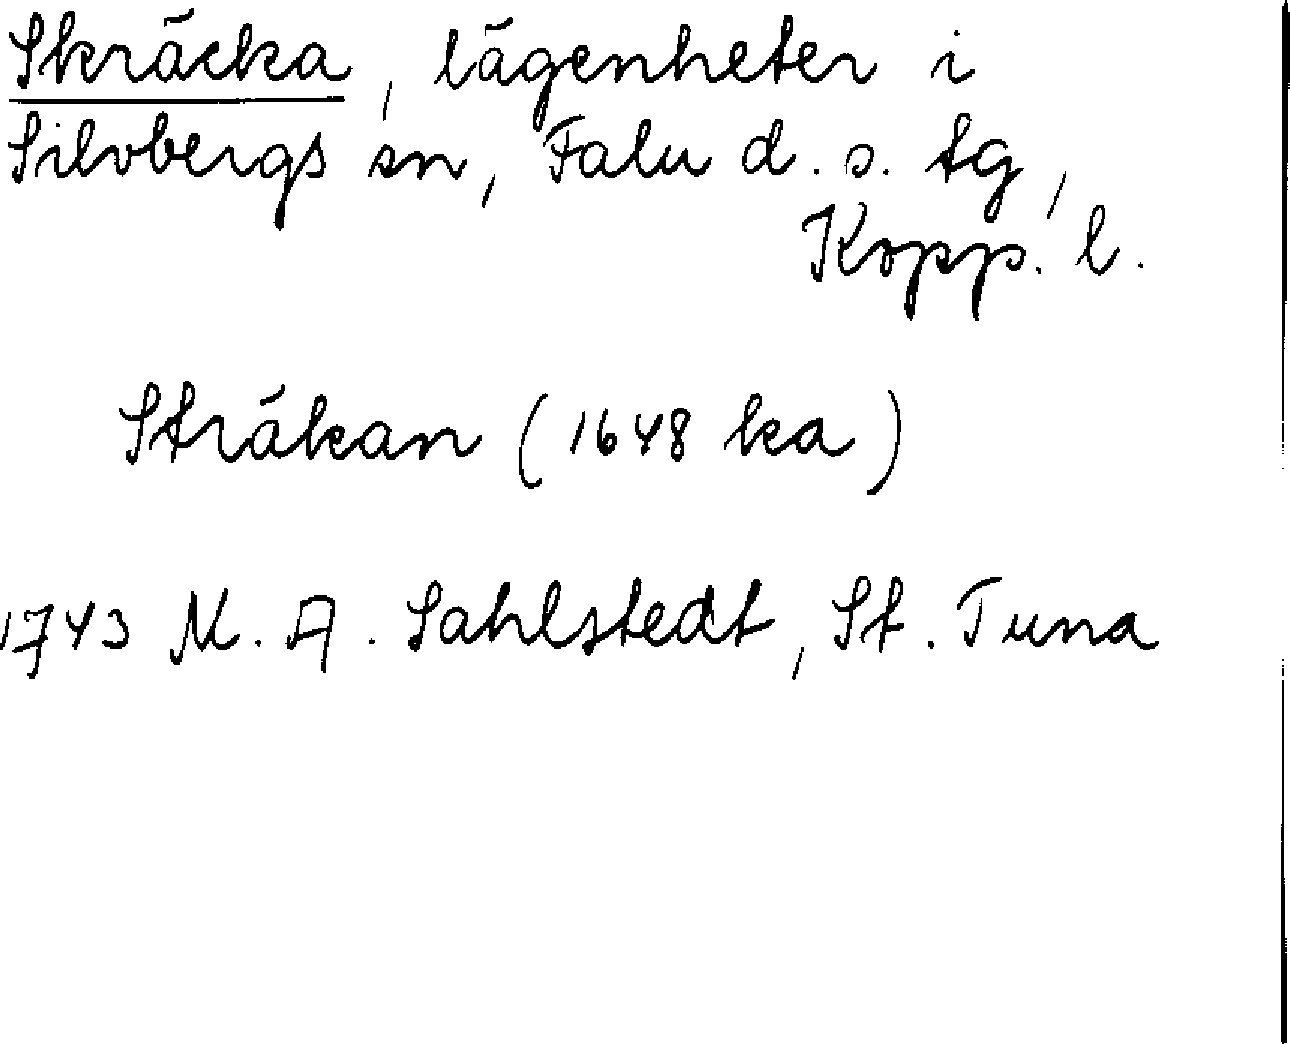 Skräcka, lägenheter i
Silvbergs sn, Falu d. s. tg,
Kopp. l.
Sträkan (1648 ka)
1743 M. A. Sahlstedt, St. Tuna